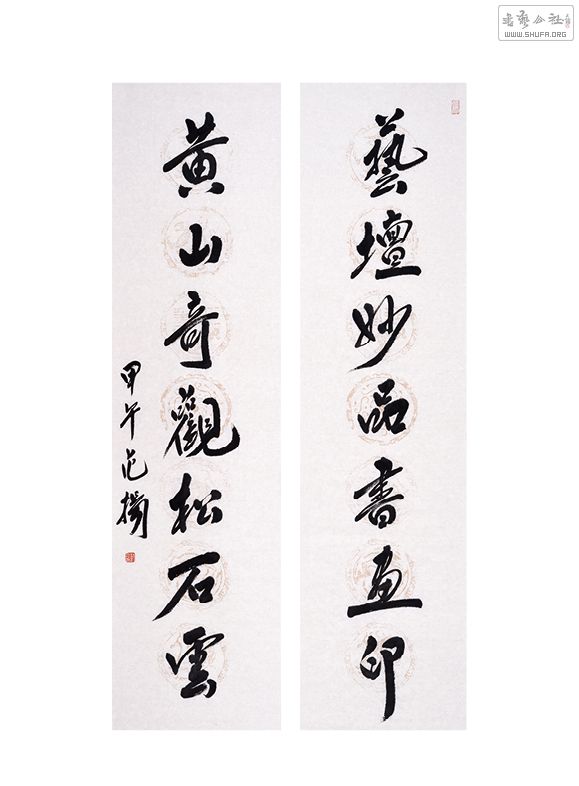 藝壇妙品書畫印
黄山奇觀松石雲
甲午范揚
書藝公社
WWW.SHUFA.ORG